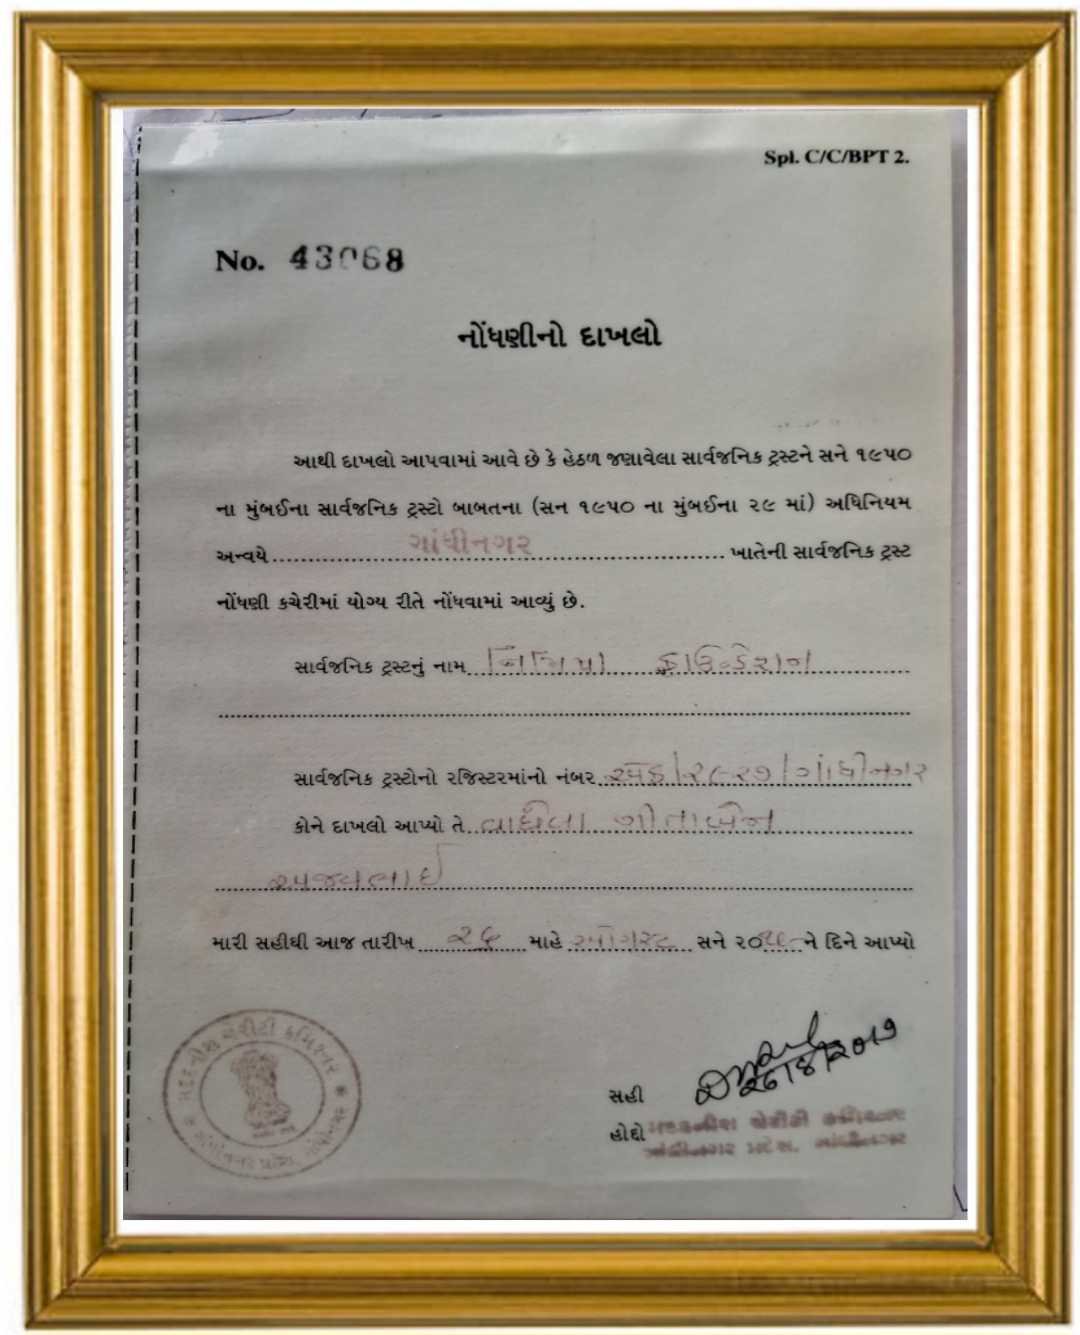 Spl. C/C/BPT 2.
No. 43068
નોંધણીનો દાખલો
આથી દાખલો આપવામાં આવે છે કે હેઠળ જણાવેલા સાર્વજનિક ટ્રસ્ટને સને ૧૯૫૦
ના મુંબઈના સાર્વજનિક ટ્રસ્ટો બાબતના (સન ૧૯૫૦ ના મુંબઈના ૨૯ માં) અધિનિયમ
અન્વયે ગાંધીનગર ખાતેની સાર્વજનિક ટ્રસ્ટ
નોંધણી કચેરીમાં યોગ્ય રીતે નોંધવામાં આવ્યું છે.
સાર્વજનિક ટ્રસ્ટનું નામ ફાઉન્ડેશન
સાર્વજનિક ટ્રસ્ટોનો રજિસ્ટરમાંનો નંબર ગાંધીનગર
કોને દાખલો આપ્યો તે વાઘેલા ગીતાબેન
મારી સહીથી આજ તારીખ ૨૬ માહે ઓગસ્ટ સને ૨૦૧૯ ને દિને આપ્યો
મદદનીશ ચેરીટી કમિશનર
સહી 26/8/2019
હોદ્દો મદદનીશ ચેરીટી કમિશનર
ગાંધીનગર પ્રદેશ, ગાંધીનગર